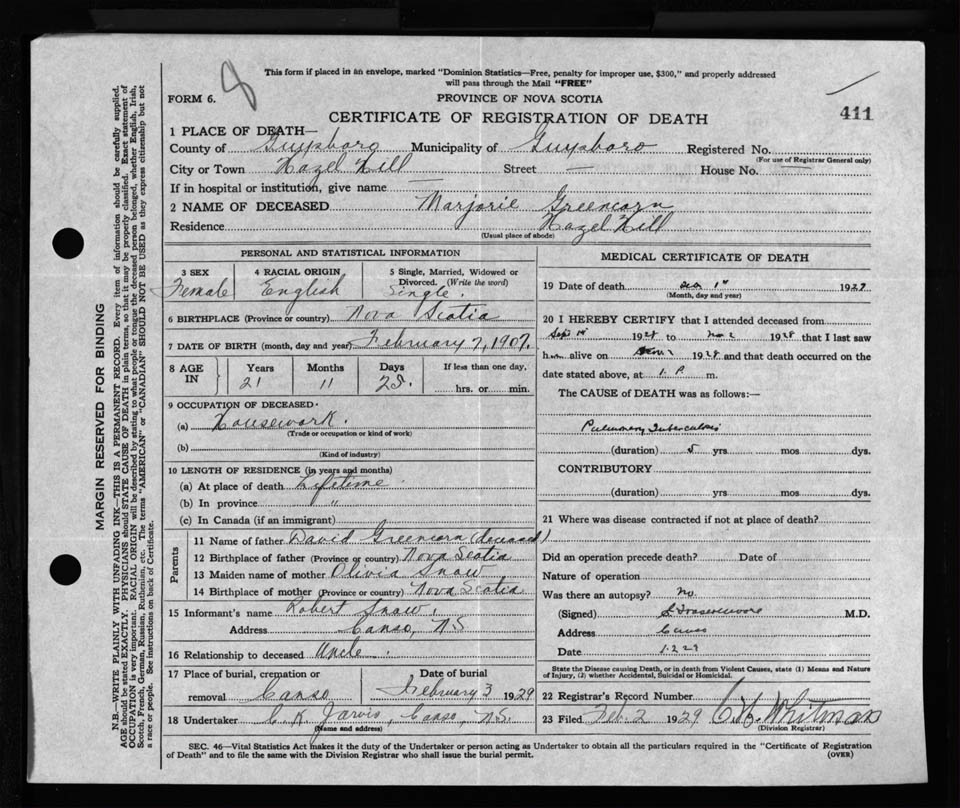 This form if placed in an envelope, marked "Dominion Statistics—Free, penalty for improper use, $300," and properly addressed
will pass through the Mail "FREE"
FORM 6.
8
PROVINCE OF NOVA SCOTIA
CERTIFICATE OF REGISTRATION OF DEATH
411
1 PLACE OF DEATH—
County of Guysboro Municipality of Guysboro Registered No.
(For use of Registrar General only)
City or Town Hazel Hill Street — House No. —
If in hospital or institution, give name —
2 NAME OF DECEASED Marjorie Greencorn
Residence Hazel Hill
(Usual place of abode)
PERSONAL AND STATISTICAL INFORMATION
3 SEX 4 RACIAL ORIGIN 5 Single, Married, Widowed or
Divorced. (Write the word)
Female English Single.
6 BIRTHPLACE (Province or country) Nova Scotia
7 DATE OF BIRTH (month, day and year) February 7, 1907.
8 AGE IN Years Months Days If less than one day,
21 11 25. hrs. or min.
9 OCCUPATION OF DECEASED
(a) Housework.
(Trade or occupation or kind of work)
(b)
(Kind of industry)
10 LENGTH OF RESIDENCE (in years and months)
(a) At place of death Lifetime
(b) In province "
(c) In Canada (if an immigrant)
Parents
11 Name of father David Greencorn (deceased)
12 Birthplace of father (Province or country) Nova Scotia
13 Maiden name of mother Olivia Snow
14 Birthplace of mother (Province or country) Nova Scotia
15 Informant's name Robert Snow.
Address Canso, NS
16 Relationship to deceased Uncle
17 Place of burial, cremation or Date of burial
removal Canso February 3 1929
18 Undertaker C. K Jarvis, Canso, N.S.
(Name and address)
MEDICAL CERTIFICATE OF DEATH
19 Date of death 1st 1929
(Month, day and year)
20 I HEREBY CERTIFY that I attended deceased from
Sept 1928 to 1928 that I last saw
h alive on 1928 and that death occurred on
date stated above, at 1. P. m.
The CAUSE of DEATH was as follows:—
Pulmonary Tuberculosis
(duration) 5 yrs mos dys.
CONTRIBUTORY
(duration) yrs mos dys.
21 Where was disease contracted if not at place of death?
Did an operation precede death? Date of
Nature of operation
Was there an autopsy? No.
(Signed) M.D.
Address Canso
Date 1.2.29
State the Disease causing Death, or in death from Violent Causes, state (1) Means and Nature
of Injury, (2) whether Accidental, Suicidal or Homicidal.
22 Registrar's Record Number
23 Filed Feb. 2 1929 C. H. Whitman
(Division Registrar)
SEC. 46—Vital Statistics Act makes it the duty of the Undertaker or person acting as Undertaker to obtain all the particulars required in the "Certificate of Registration
of Death" and to file the same with the Division Registrar who shall issue the burial permit. (OVER)
MARGIN RESERVED FOR BINDING
N.B.—WRITE PLAINLY WITH UNFADING INK—THIS IS A PERMANENT RECORD. Every item of information should be carefully supplied.
AGE should be stated EXACTLY. PHYSICIANS should STATE CAUSE OF DEATH in plain terms, so that it may be properly classified. Exact statement of
OCCUPATION is very important. RACIAL ORIGIN will be described by stating to what people or tongue the deceased person belonged, whether English, Irish,
Scotch, French, German, Russian, Ruthenian, etc. The terms "AMERICAN" or "CANADIAN" SHOULD NOT BE USED as they express citizenship but not
a race or people. See instructions on back of Certificate.